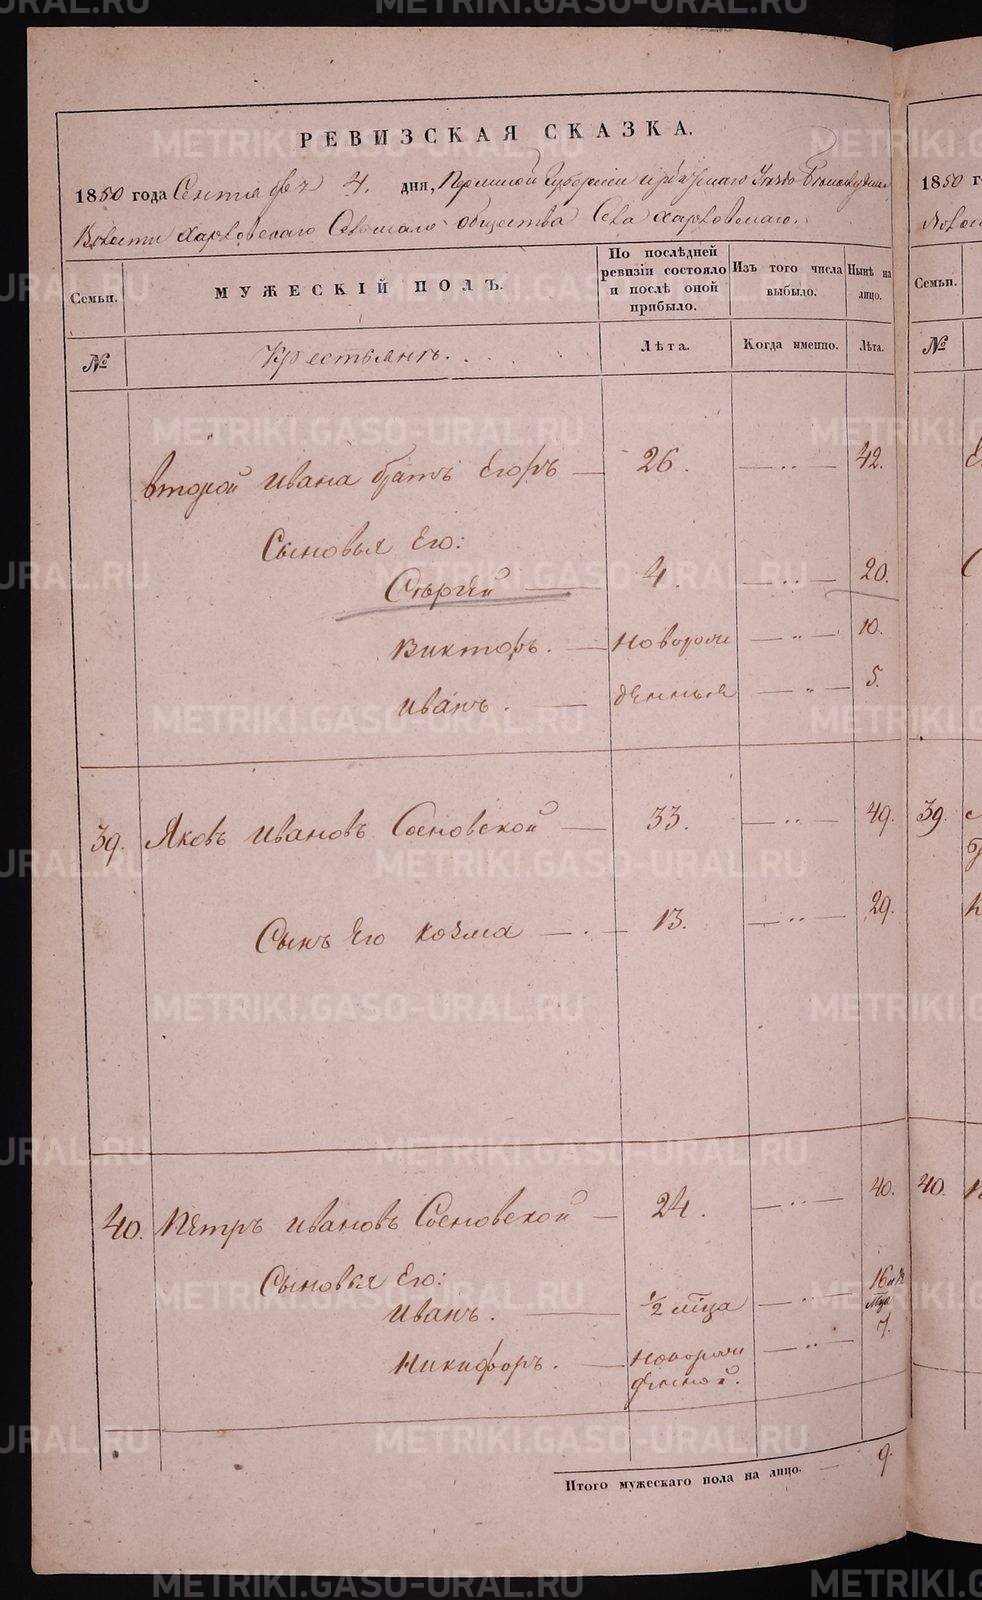 РЕВИЗСКАЯ СКАЗКА.
1850 года Сентября 4. дня, Пермской Губернии Ирбитскаго Уезда
Волости Харловскаго Сельскаго общества Села Харловскаго.
Семьи.
МУЖЕСКІЙ ПОЛЪ.
По послѣдней ревизіи состояло и послѣ оной прибыло.
Изъ того числа выбыло.
Нынѣ на лицо.
№
Крестьянъ.
Лѣта.
Когда именно.
Лѣта.
второй Ивана братъ Егоръ — 26. — „ — 42.
Сыновья Его:
Сергей — 4. — „ — 20.
Викторъ. — новорож — „ — 10.
Иванъ. — денные — „ — 5.
39. Яковъ Ивановъ Сосновской — 33. — „ — 49.
Сынъ Его Козма — . — 13. — „ — 29.
40. Петръ Ивановъ Сосновской — 24. — „ — 40.
Сыновья Его:
Иванъ. — 1/2 мца — „ — 16
Никифоръ. — новорож — „ — 7.
денной.
Итого мужескаго пола на лицо. — 9.
1850 г
Семьи.
№
39.
40.
METRIKI.GASO-URAL.RU